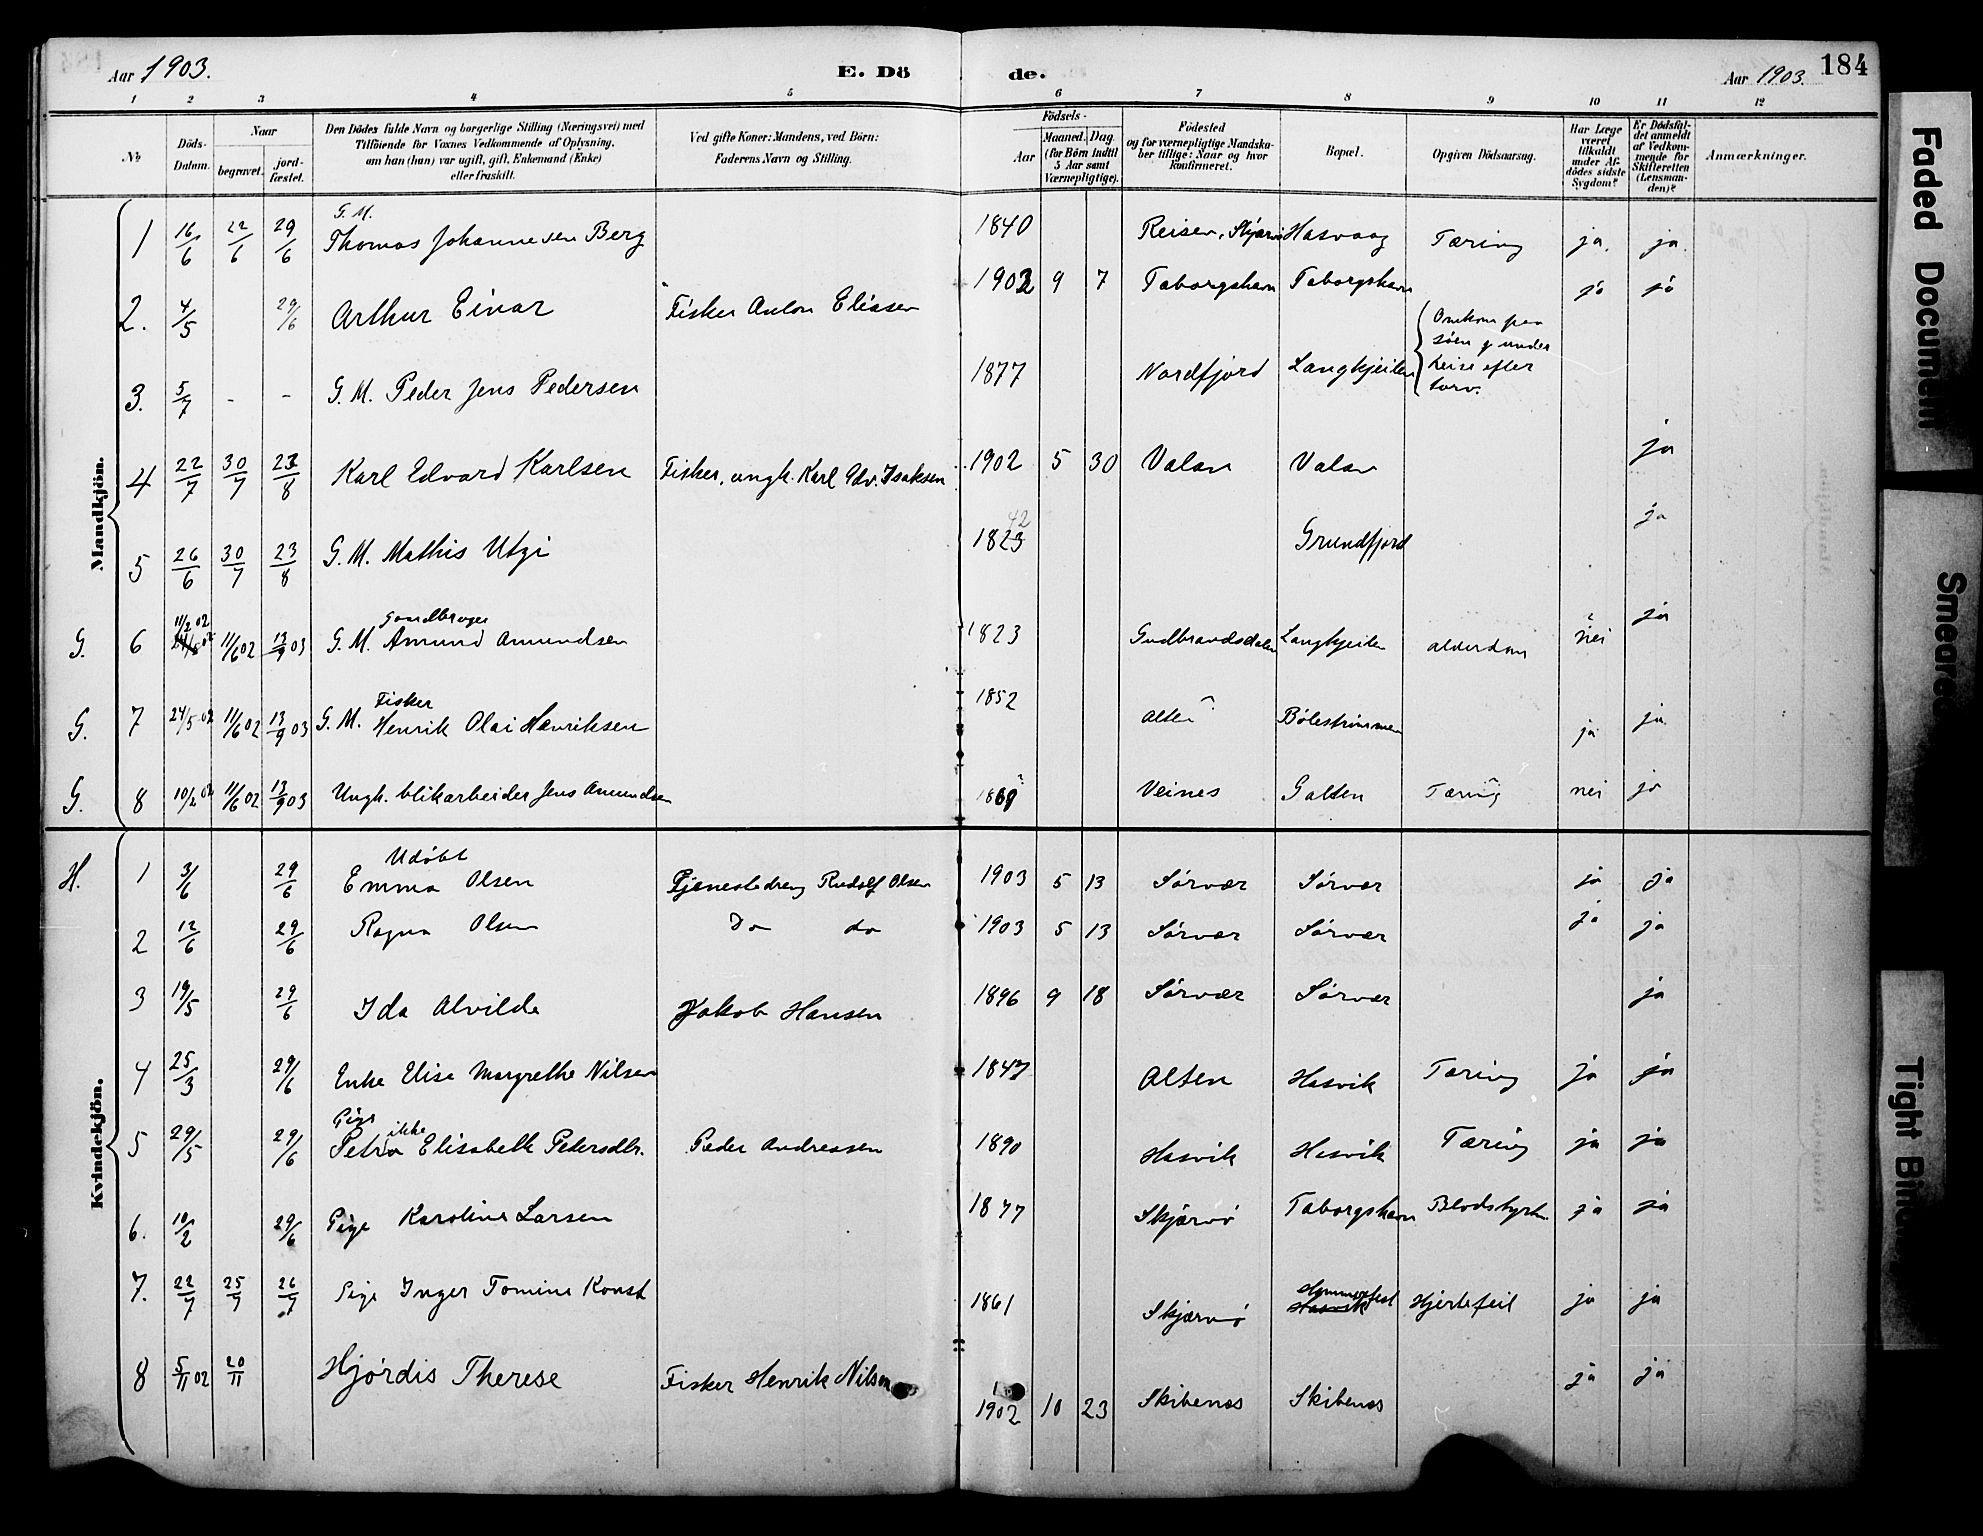 Aar 1903.
E. Dö
de.
Aar 1903.
184
1 2 3 4 5 6 7 8 9 10 11 12
No
Döds-Datum.
Naar
begravet.
jord-fæstet.
Den Dödes fulde Navn og borgerlige Stilling (Næringsvei) med
Tilföiende for Voxnes Vedkommende af Oplysning,
om han (hun) var ugift, gift, Enkemand (Enke)
eller fraskilt.
Ved gifte Koner: Mandens, ved Börn:
Faderens Navn og Stilling.
Födsels-
Aar
Maaned. Dag.
(for Börn indtil
5 Aar samt
Værnepligtige).
Födested
og for værnepligtige Mandska-
ber tillige: Naar og hvor
konfirmeret.
Bopæl.
Opgiven Dödsaarsag.
Har Læge
været
tilkaldt
under Af-
dödes sidste
Sygdom?
Er Dödsfal-
det anmeldt
af Vedkom-
mende for
Skifteretten
(Lensman-
den)?
Anmærkninger.
Mandkjön.
G. M.
1 16/6 22/6 29/6 Thomas Johannesen Berg 1840 Reisen, Skjærvø Hasvaag Tæring ja. ja.
2. 4/5 29/6 Arthur Einar Fisker Anton Eliassen 1902 9 7 Taborghavn Taborghavn ja ja
3. 5/7 - - G. M. Peder Jens Pedersen 1877 Nordfjord Langkjeilen
Omkom paa
søen under
reise efter
torv.
4 22/7 30/7 23/8 Karl Edvard Karlsen Fisker, ungk. Karl Edv. Isaksen 1902 5 30 Valan Valan ja
42
5 26/6 30/7 23/8 G. M. Mathis Utzi 1823 Grundfjord ja
11/2 02 Gaardbruger
G. 6 11/6 02 13/9 03 G. M. Amund Amundsen 1823 Gudbrandsdalen Langkjeilen alderdom nei ja
Fisker
G. 7 24/5 02 11/6 02 13/9 03 G. M. Henrik Olai Henriksen 1852 Alten Bølestrømmen ja ja
G. 8 10/2 02 11/6 02 13/9 03 Ungk. blikarbeider Jens Amundsen 1869 Veines Galten Tæring nei ja
Kvindekjön.
Udøbt
H. 1 3/6 29/6 Emma Olsen Tjenestedreng Rudolf Olsen 1903 5 13 Sørvær Sørvær ja ja
2 12/6 29/6 Ragna Olsen Do do 1903 5 13 Sørvær Sørvær ja ja
3 19/5 29/6 Ida Alvilde Jakob Hansen 1896 9 18 Sørvær Sørvær ja
4 25/3 29/6 Enke Elise Margrethe Nilsen 1847 Alten Hasvik Tæring ja ja
Pige ikke
5 29/5 29/6 Petra Elisabeth Petersdtr. Peder Andreassen 1890 Hasvik Hasvik Tæring ja ja
6. 10/2 29/6 Pige Karoline Larsen 1877 Skjærvø Taborghavn Blodstyrtn. ja ja
Hammerfest
7. 22/7 25/7 26/7 Pige Inger Tomine Konst 1861 Skjærvø Hasvik Hjertefeil ja ja
8 5/11 02 20/11 Hjørdis Therese Fisker Henrik Nilsen 1902 10 23 Skibenes Skibenes ja ja
Faded Document
Smeared
Tight Bin